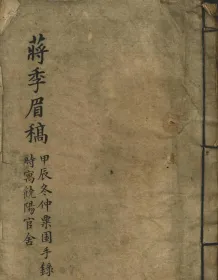 蔣季眉稿
甲辰冬仲栗園手錄
時寓饒陽官舍